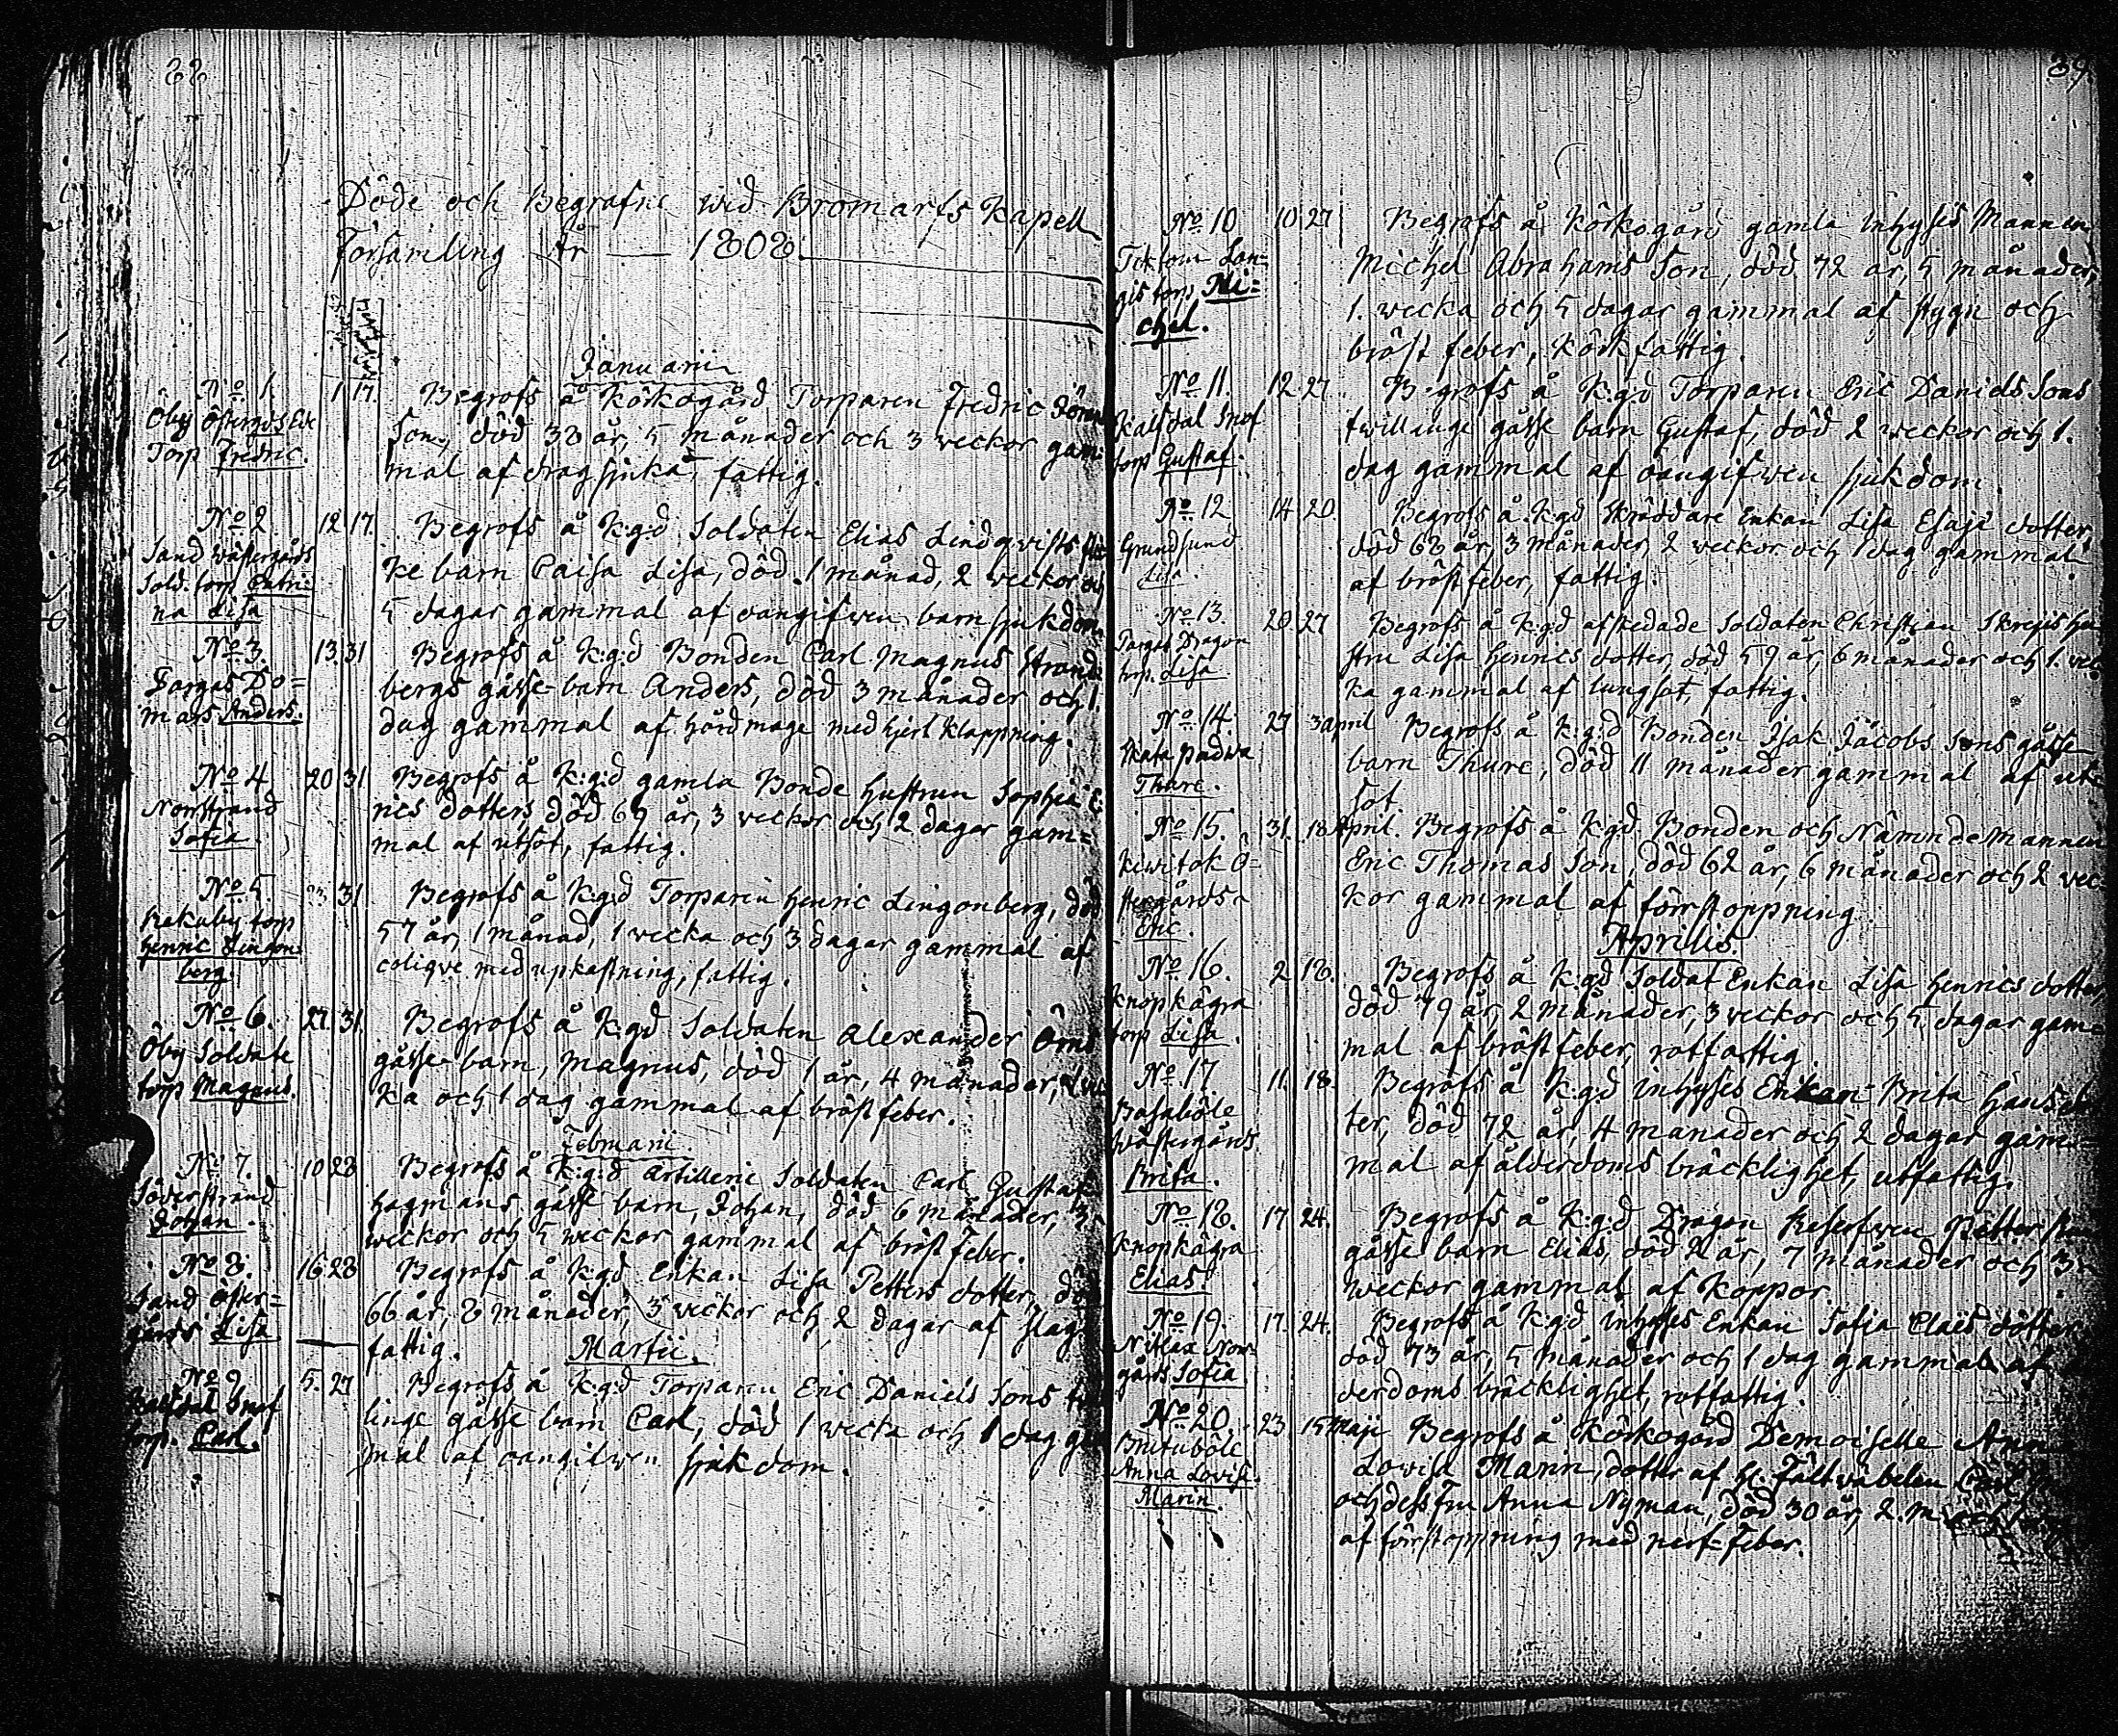 88
Döde och Begrafne wid Bromarfs Kapell
Församling År — 1808.
Januarii
No 1.
Öby
Torp Fredric.
1 17.
Begrofs å Körkogård Torparen Fredric
Son, död 38 år, 5 månader och 3 weckor gam-
mal af dragsjuka, fattig.
No 2
Sand Wästergårds
Sold. torp Catri-
na Lisa
12 17.
Begrofs å K:g:d Soldaten Elias Lindqvists
ke barn Caisa Lisa, död 1 månad, 2 weckor och
5 dagar gammal af oangifwen barnsjukdom.
No 3.
Do-
mars Anders.
13. 31
Begrofs å K:g:d Bonden Carl Magnus Strand-
bergs gåsse-barn Anders, död 3 månader och 1.
dag gammal af hård mage med hjert klappning.
No 4
Norrstrand
Sofia.
20 31
Begrofs å K:g:d gamla Bonde hustrun Sophia
dotters död 69 år, 3 weckor och 2 dagar gam-
mal af utsot, fattig.
No 5.
torp
Henric Lingon-
berg.
31
Begrofs å K:g:d Torparen Henric Lingonberg, död
57 år, 1 månad, 1 wecka och 3 dagar gammal af
coliqve med upkastning, fattig.
No 6.
Öby Soldate
torp Magnus.
27. 31.
Begrofs å K:g:d Soldaten Alexander Öms
gåsse-barn, Magnus, död 1 år, 4 månader,
ka och 1 dag gammal af bröstfeber.
Februarii.
No 7.
Söderstrand
Johan.
10 28
Begrofs å K:g:d Artillerie Soldaten Carl Gustaf
Hagmans gåsse barn, Johan, död 6 månader, 3
weckor och 5 weckor gammal af bröstfeber.
No 8.
Sand Öster-
gårds Lisa
16 28
Begrofs å K:g:d Enkan Lisa Petters dotter, död
66 år, 8 månader, 3 weckor och 2 dagar af slag
fattig.
Martii.
No 9
Kalfdal
torp. Carl.
5. 27
Begrofs å K:g:d Torparen Eric Daniels Sons
linge gåsse barn Carl, död 1 wecka och 1 dag
mal af oangifwen sjukdom.
89
No 10
torp Mi-
chel.
10 27
Begrofs å Körkogård gamla inhyses Mannen
Michel Abrahams Son, död 72 år, 5 månader,
1. wecka och 5 dagar gammal af stygn och
bröst feber, körkfattig.
No 11.
Kalfdal
torp Gustaf.
12 27
Begrofs å K:g:d Torparen Eric Daniels Sons
twillinge gåsse barn Gustaf, död 2 weckor och 1.
dag gammal af oangifwen sjukdom.
No 12
Grundsund
Lisa.
14 20.
Begrofs å K:g:d Skräddare Enkan Lisa Esaje dotter,
död 68 år, 3 månader, 2 weckor och 1 dag gammal
af bröstfeber, fattig.
No 13.
Dragon
torp. Lisa
20 27
Begrofs å K:g:d afskedade Soldaten Christian
stru Lisa Henrics dotter, död 59 år, 6 månader och 1.
ka gammal af lungsot, fattig.
No 14.
Skata
Thure.
27 3 april
Begrofs å K:g:d Bonden Isak Jacobs Sons gåsse
barn Thure, död 11 månader gammal af
sot.
No 15.
Kiwitok Ö-
stergårds
Eric.
31. 18 April.
Begrofs å K:g:d Bonden och Nämndemannen
Eric Thomas Son, död 62 år, 6 månader och 2 wec-
kor gammal af förstoppning.
Aprilis.
No 16.
Knopkägra
torp Lisa.
2 18.
Begrofs å K:g:d Soldat Enkan Lisa Henrics dotter,
död 79 år, 2 månader, 3 weckor och 5 dagar gam-
mal af bröstfeber, rotfattig.
No 17
Wästergårds
Brita.
11. 18.
Begrofs å K:g:d inhyses Enkan Brita Hans
ter, död 72 år, 4 månader och 2 dagar gam-
mal af ålderdoms bräcklighet, utfattig.
No 18.
Knopkägra
Elias
17. 24.
Begrofs å K:g:d Dragon Reserfwen Petter
gåsse barn Elias, död 2 år, 7 månader och 3
weckor gammal af koppor.
No 19.
Norr-
gårds Sofia
17. 24.
Begrofs å K:g:d inhyses Enkan Sofia Claës dotter
död 73 år, 5 månader och 1 dag gammal af
derdoms bräcklighet, rotfattig.
No 20.
Anna Lovisa
Marin.
23. 15 Maji
Begrofs å Körkogård Demoiselle Anna
Lovisa Marin, dotter af H. Fältwäbelen Carl
och dess Fru Anna Nyman, död 30 år, 2. m. och
af förstoppning med nerf-Feber.